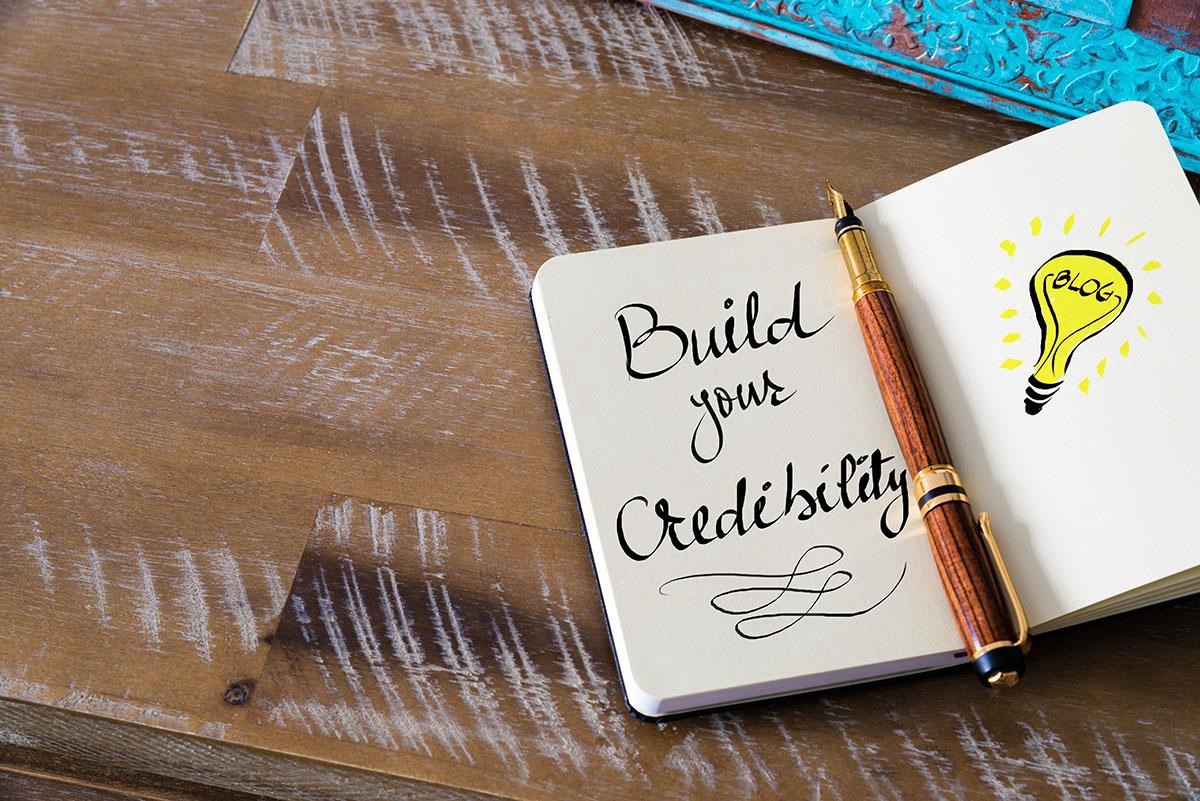 Build
your
Credibility
BLOG